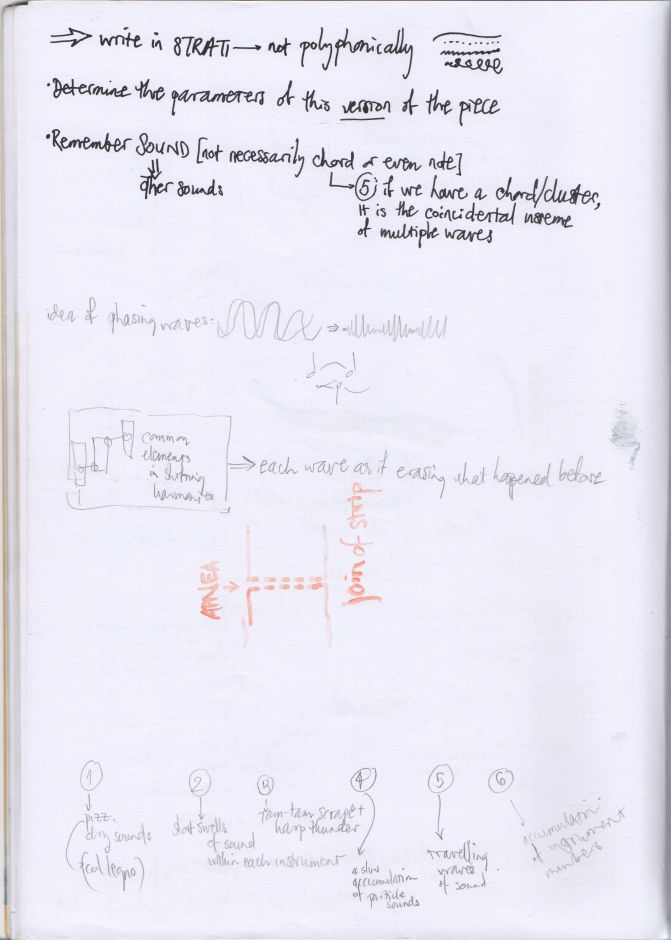 ⇒ write in STRATI → not polyphonically
• Determine the parameters of this version of the piece
• Remember SOUND [not necessarily chord or even note]
other sounds
↳ ⑤; if we have a chord/cluster,
it is the coincidental
of multiple waves
idea of phasing waves: ⇒
common
elements
in shifting
harmonies
⇒ each wave as if erasing what happened before
APNEA →
Join of strip
①
pizz.
dry sounds
(col legno)
②
swells
of sound
within each instrument
③
tam-tam scrape +
harp thunder
④
a slow
accumulation
of particle
sounds
⑤
travelling
waves
of sound
⑥
accumulation
of instrument
numbers